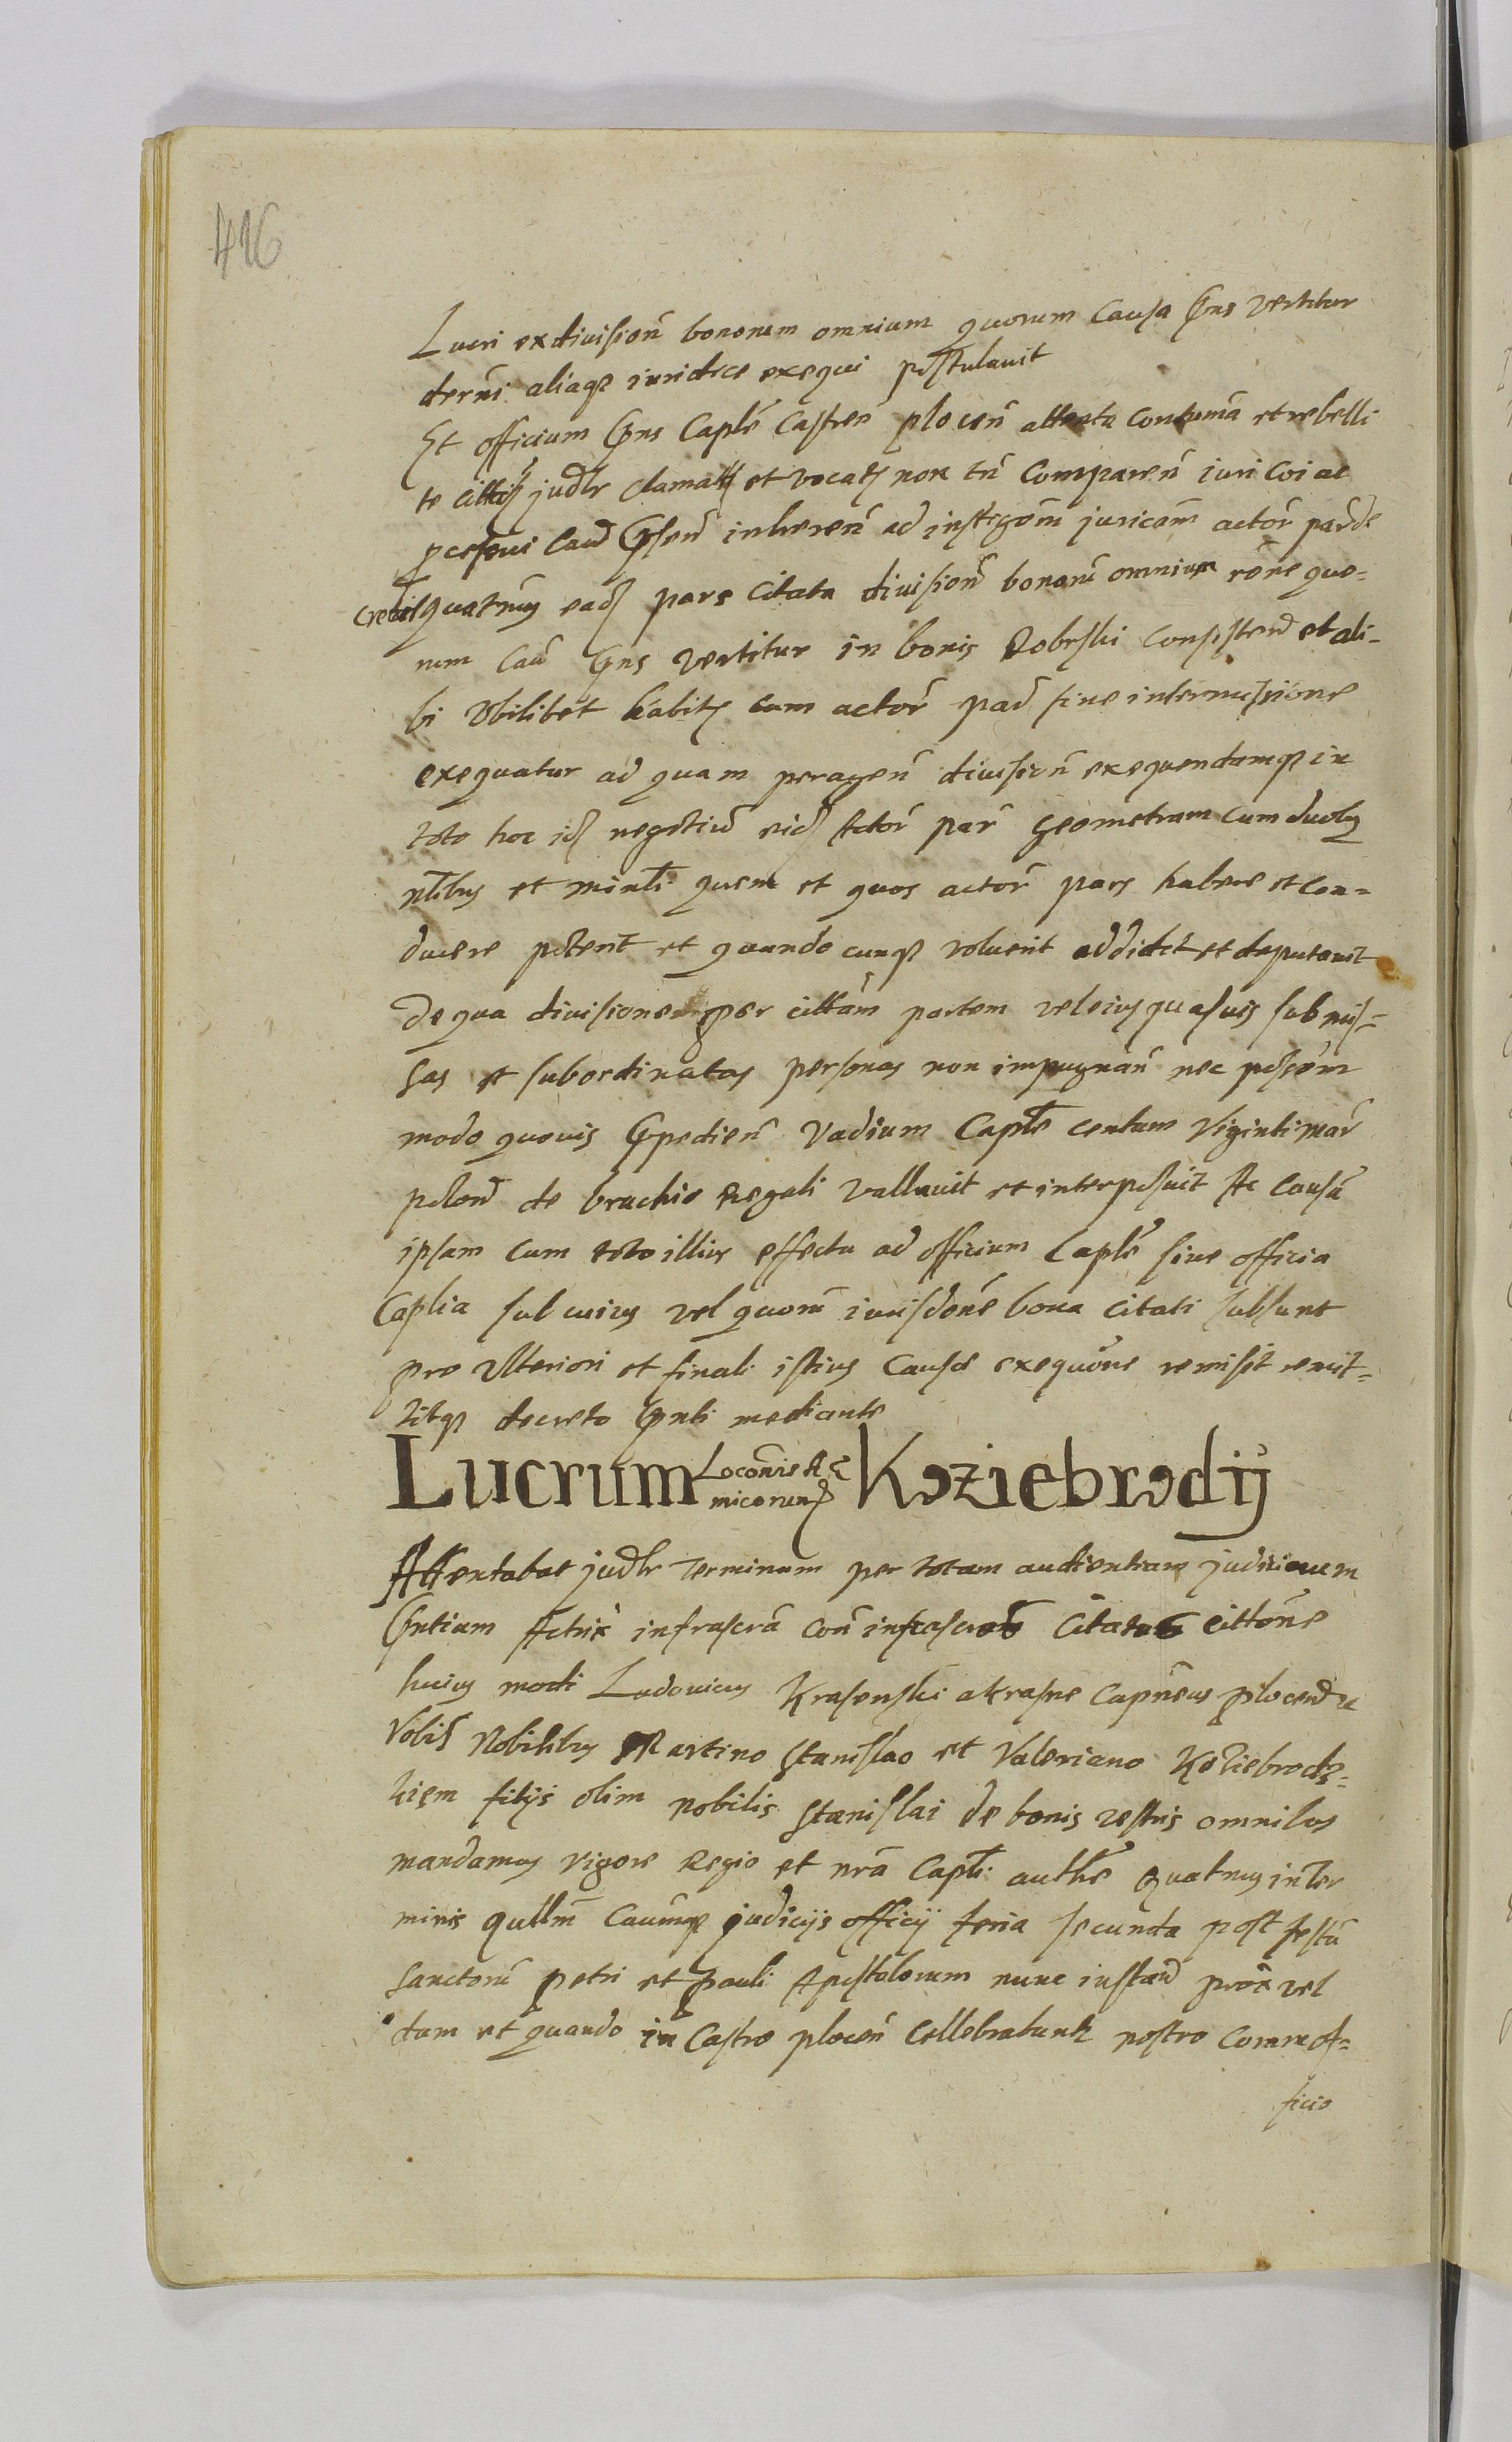 416
Lucri ex divisioñ bonorum omnium quorum causa Pñs vertitur
decerni aliaq3 iuridice exequi postulavit
Et officium Pñs Caplẽ Castreñ ploceñ attenta contumã et rebelli
te citti judlr clamati et vocati non tñ compareñ iuri coi ac
pcessui Caũ Pseñ inhereñ ad instigõm juricam actoř parř de
crevit quatñus ead pars citata divisioñ bonorũ omnium rõne quo-
rum Caũ Pñs vertitur in bonis Dobrski consisteñ et ali-
bi ubilibet habit cum actoř parř sine intermissione
exequatur ad quam perageñ divisioñ exequendamq3 in
toto hoc id negotiũ eid Actoř parř Geometram cum duobus
nlibus et minlt quem et quos actoř pars habere et con-
ducere poterit et quando cunq3 voluerit addidit et deputavit
de qua divisione per cittam partem vel eius quasvis submis-
sas et subordinatas personas non impugnañ nec possõm
modo quovis Ppedieñ Vadium Caplẽ centum viginti marř
poloñ de brachio Regali vallavit et interposuit Ac Causã
ipsam cum toto illius effectu ad officium Caplẽ sive officia
Caplia sub cuius vel quorũ iurisdõne bona citati subsunt
pro ulteriori et finali istius causæ exequõne remisit remit-
titq3 decreto Pnti mediante
Lucrum Locõnis Rc
micorum Koziebrodij
Attentabat judlr Terminum per totam audientiam judiciorum
Pntium Actrix infrascrã coñ infrascrõs Citatos cittõne
huius modi Ludovicus Krasenski a Krasne Capneus ploceñ
Vobis Nobilibus Martino Stanislao et Valeriano Koziebrodz-
kiem filijs olim nobilis Stanislai de bonis vestris omnibus
mandamus vigore Regio et nrã Caplt authẽ Quatnus in Ter
minis qullm Caumq3 judicijs officij feria secunda post festũ
sanctorũ petri et pauli Apostolorum nunc instañ prox vel
dum et quando in Castro ploceñ cellebrabuntr nostro coram of-
ficio